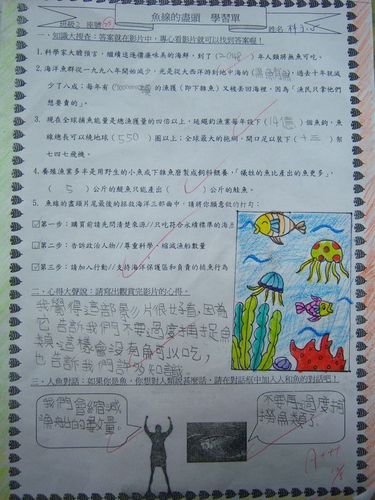 魚線的盡頭　學習單
班級2 座號 姓名
一、知識大搜查：答案就在影片中，專心看影片就可以找到答案喔！
1.科學家大膽預言，繼續這樣濫捕美的海鮮，到了(2048)年人類將無魚可吃。
2.海洋魚群從一九八八年開始減少，光是從大西洋游到地中海的(黑鮪魚)，過去十年就減
少了八成；每年有()的漁獲(即下雜魚)又被丟回海裡，因為「漁民只拿他們
想要賣的」。
3. 現在全球捕魚能量是總漁獲量的四倍以上，延繩釣漁業每年設下(14億)個魚鉤，魚
線總長可以繞地球(550)圈以上；全球最大的拖網，開口足以裝下(十三)架
七四七飛機。
4.養殖漁業多半是用野生的小魚或下雜魚磨製成飼料餵養，「犧牲的魚比產出的魚更多」，
(5)公斤的鯷魚只能產出()公斤的鮭魚。
5. 魚線的盡頭片尾最後的拯救海洋三部曲中，請將你願意做的打勾：
☑第一步：購買前請先問清楚來源//只吃符合永續標準的海鮮
☑第二步：告訴政治人物//尊重科學，縮減漁船數量
☑第三步：請加入行動//支持海洋保護區和負責的捕魚行為
二、心得大聲說：請寫出觀賞完影片的心得。
我覺得這部影片很好看，因為
它告訴我們不要過度捕捉魚
類，這樣會沒有魚可以吃，
也告訴我們許多知識
三、人魚對話：如果你是魚，你想對人類說甚麼話，請在對話框中加入人和魚的對話吧！
我們會縮減
漁船的數量。
不要再過度捕
撈魚類了。
A+++